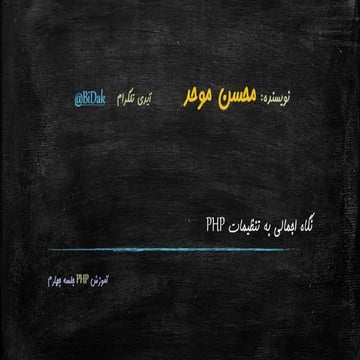 نویسنده: محسن موحد آیدی تلگرام @BiDak
نگاه اجمالی به تنظیمات PHP
آموزش PHP جلسه چهارم